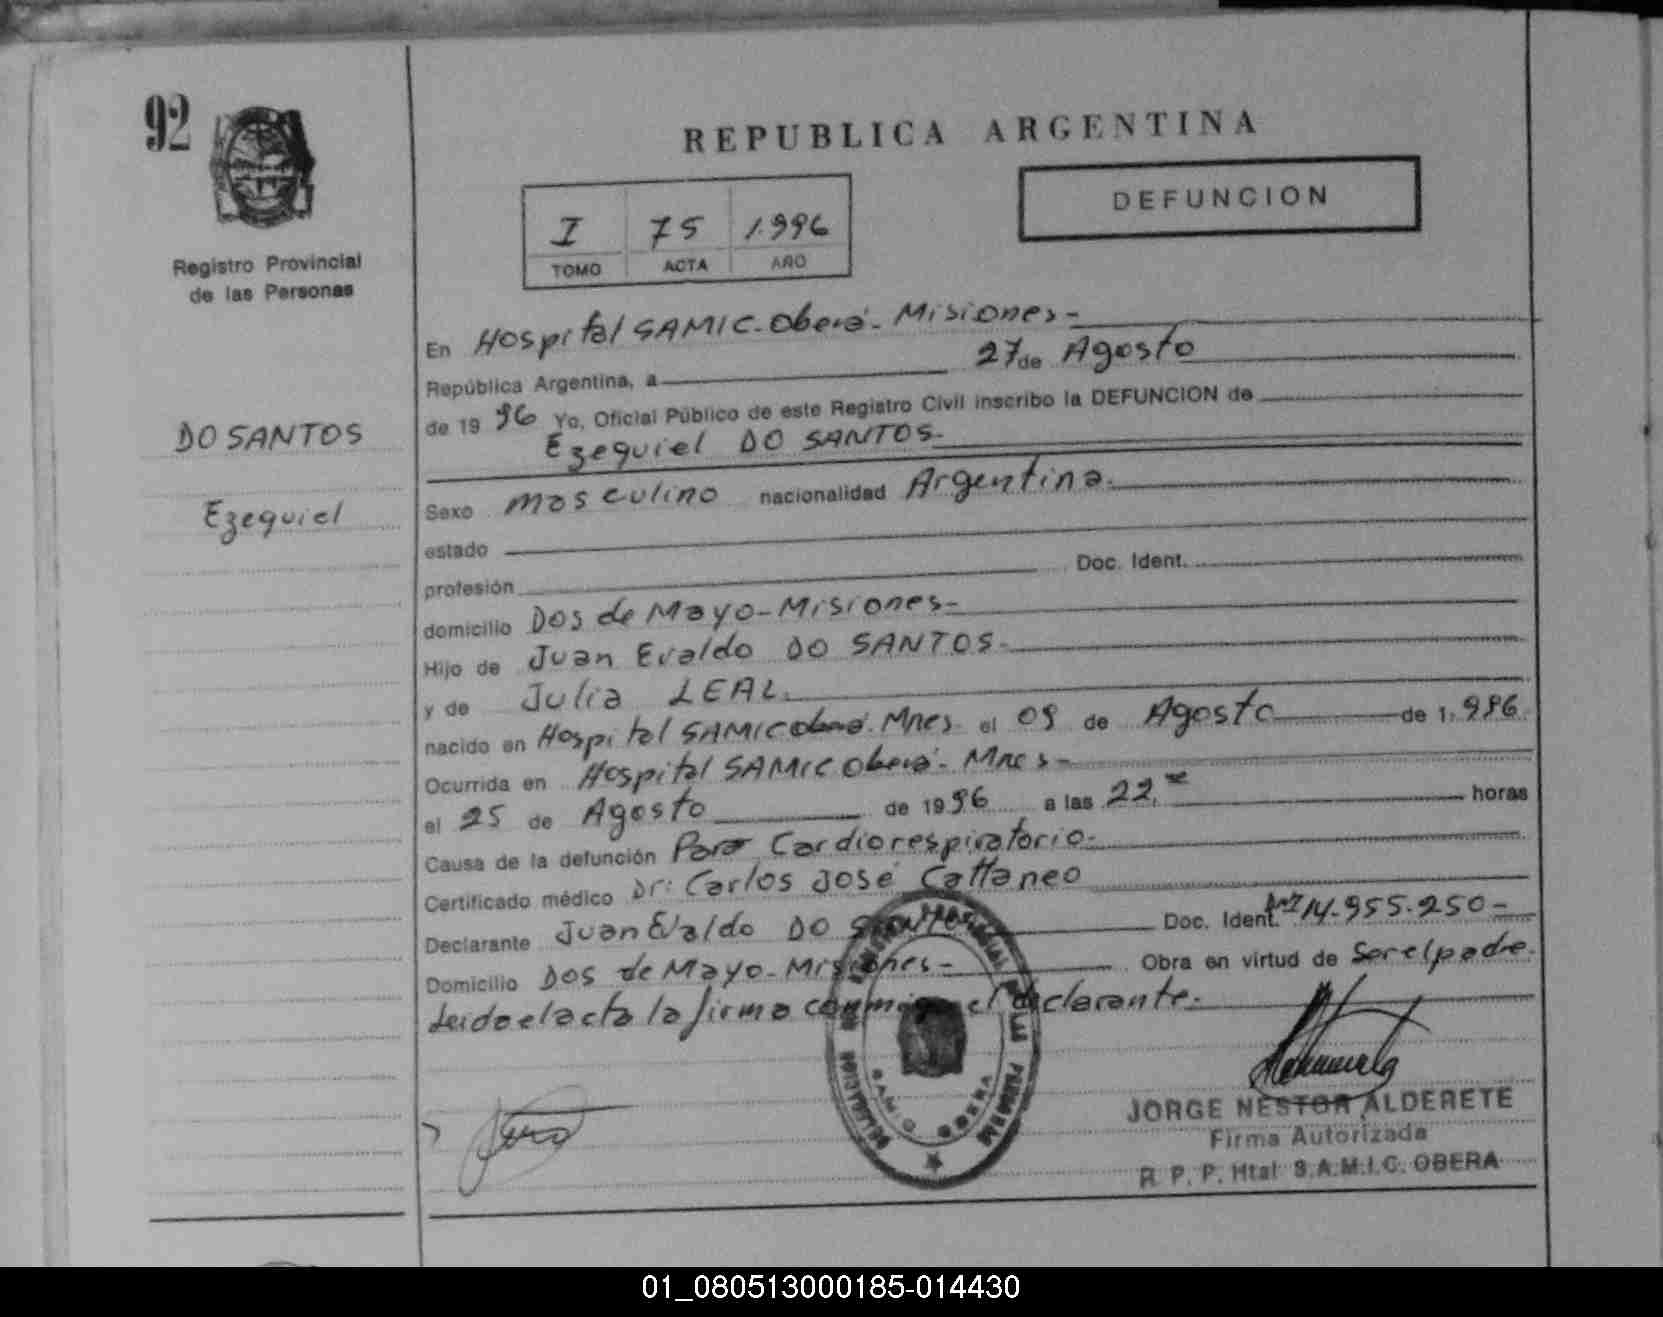 92
Registro Provincial
de las Personas
DO SANTOS
Ezequiel
REPUBLICA ARGENTINA
DEFUNCION
I 75 1.996
TOMO ACTA AÑO
En Hospital SAMIC-Oberá-Misiones-
República Argentina, a 27 de Agosto
de 19 96 Yo, Oficial Público de este Registro Civil inscribo la DEFUNCION de
Ezequiel DO SANTOS-
Sexo masculino nacionalidad Argentina-
estado
profesión Doc. Ident.
domicilio Dos de Mayo-Misiones-
Hijo de Juan Evaldo DO SANTOS-
y de Julia LEAL.
nacido en Hospital SAMIC Oberá. Mnes el 09 de Agosto de 1.996.
Ocurrida en Hospital SAMIC Oberá- Mnes-
el 25 de Agosto de 1996 a las 22, horas
Causa de la defunción Paro Cardiorespiratorio-
Certificado médico Dr: Carlos José Cattaneo
Declarante Juan Evaldo DO SANTOS Doc. Ident. 14.955.250-
Domicilio Dos de Mayo-Misiones- Obra en virtud de Ser el padre.
Leida el acta la firma conmigo el declarante.-
SAMIC OBERA
JORGE NESTOR ALDERETE
Firma Autorizada
R. P. P. Htal S.A.M.I.C. OBERA
01_080513000185-014430